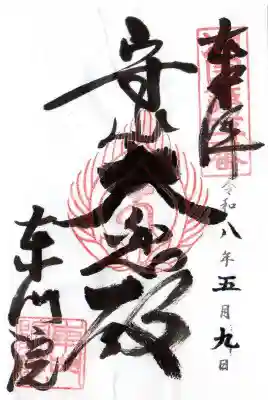 奉拝
令和八年五月九日
守山大悲殿
東門院